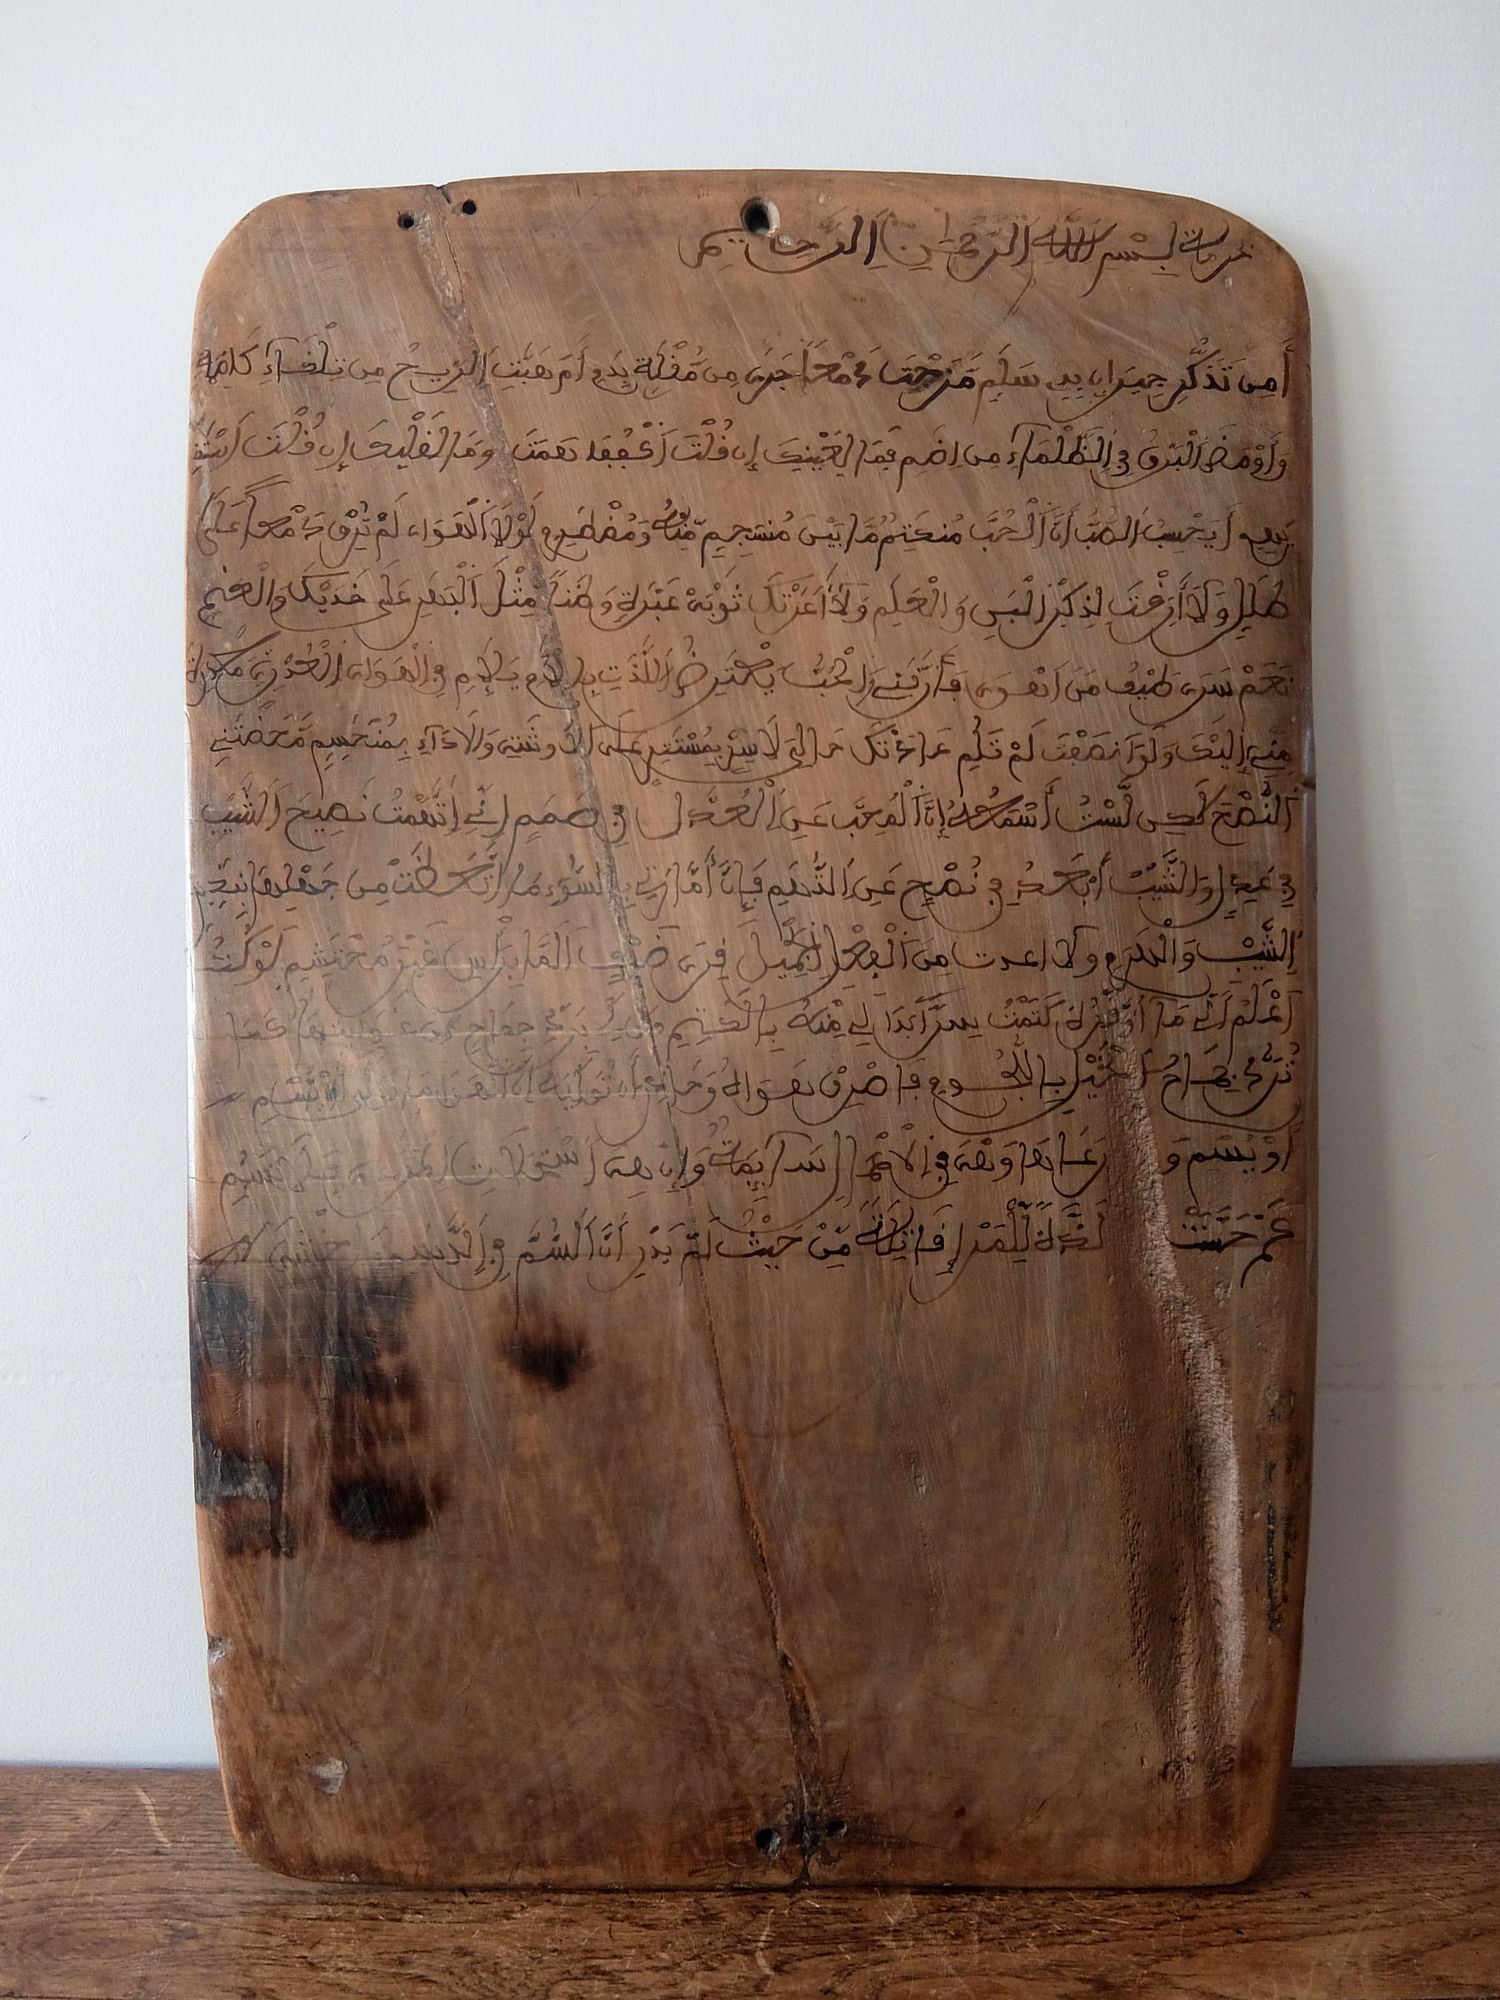 بسم الله الرحمن الرحيم
أَمِن تَذَكُّرِ جِيرَانٍ بِذِي سَلَمِ مَزَجْتَ دَمْعًا جَرَى مِن مُّقْلَةٍ بِدَمِ أَمْ هَبَّتِ الرِّيحُ مِن تِلْقَاءِ كَاظِمَةٍ
وَأَوْمَضَ الْبَرْقُ فِي الظَّلْمَاءِ مِن إِضَمِ فَمَا لِعَيْنَيْكَ إِن قُلْتَ اكْفُفَا هَمَتَا وَمَا لِقَلْبِكَ إِن قُلْتَ اسْتَفِقْ
يَهِمِ أَيَحْسِبُ الصَّبُّ أَنَّ الْحُبَّ مُنكَتِمٌ مَّا بَيْنَ مُنسَجِمٍ مِّنْهُ وَمُضْطَرِمِ لَوْلَا الْهَوَى لَمْ تُرِقْ دَمْعًا عَلَى
طَلَلٍ وَلَا أَرِقْتَ لِذِكْرِ الْبَانِ وَالْعَلَمِ وَلَا أَعَارَتْكَ ثَوْبَيْ عَبْرَةٍ وَضَنًى مِثْلَ الْبَهَارِ عَلَى خَدَّيْكَ وَالْعَنَمِ
نَعَمْ سَرَى طَيْفُ مَنْ أَهْوَى فَأَرَّقَنِي وَالْحُبُّ يَعْتَرِضُ اللَّذَّاتِ بِالْأَلَمِ يَا لَائِمِي فِي الْهَوَى الْعُذْرِيِّ مَعْذِرَةً
مِنِّي إِلَيْكَ وَلَوْ أَنصَفْتَ لَمْ تَلُمِ عَدَتْكَ حَالِيَ لَا سِرِّي بِمُسْتَتِرٍ عَنِ الْوُشَاةِ وَلَا دَائِي بِمُنْحَسِمِ مَحَّضْتَنِي
النُّصْحَ لَكِن لَّسْتُ أَسْمَعُهُ إِنَّ الْمُحِبَّ عَنِ الْعُذَّالِ فِي صَمَمِ إِنِّي اتَّهَمْتُ نَصِيحَ الشَّيْبِ
فِي عَذَلٍ وَالشَّيْبُ أَبْعَدُ فِي نُصْحٍ عَنِ التُّهَمِ فَإِنَّ أَمَّارَتِي بِالسُّوءِ مَا اتَّعَظَتْ مِن جَهْلِهَا بِنَذِيرِ
الشَّيْبِ وَالْهَرَمِ وَلَا أَعَدَّتْ مِنَ الْفِعْلِ الْجَمِيلِ قِرَى ضَيْفٍ أَلَمَّ بِرَأْسِي غَيْرَ مُحْتَشِمِ لَوْ كُنتُ
أَعْلَمُ أَنِّي مَا أُوَقِّرُهُ كَتَمْتُ سِرًّا بَدَا لِي مِنْهُ بِالْكَتَمِ مَن لِي بِرَدِّ جِمَاحٍ مِن غِوَايَتِهَا كَمَا
يُرَدُّ جِمَاحُ الْخَيْلِ بِاللُّجُمِ فَاصْرِفْ هَوَاهَا وَحَاذِرْ أَن تُوَلِّيَهُ إِنَّ الْهَوَى مَا تَوَلَّى يُصْمِ
أَوْ يَصِمِ وَرَاعِهَا وَهْيَ فِي الْأَعْمَالِ سَائِمَةٌ وَإِنْ هِيَ اسْتَحْلَتِ الْمَرْعَى فَلَا تُسِمِ
كَمْ حَسَّنَتْ لَذَّةً لِّلْمَرْءِ قَاتِلَةً مِّنْ حَيْثُ لَمْ يَدْرِ أَنَّ السُّمَّ فِي الدَّسَمِ